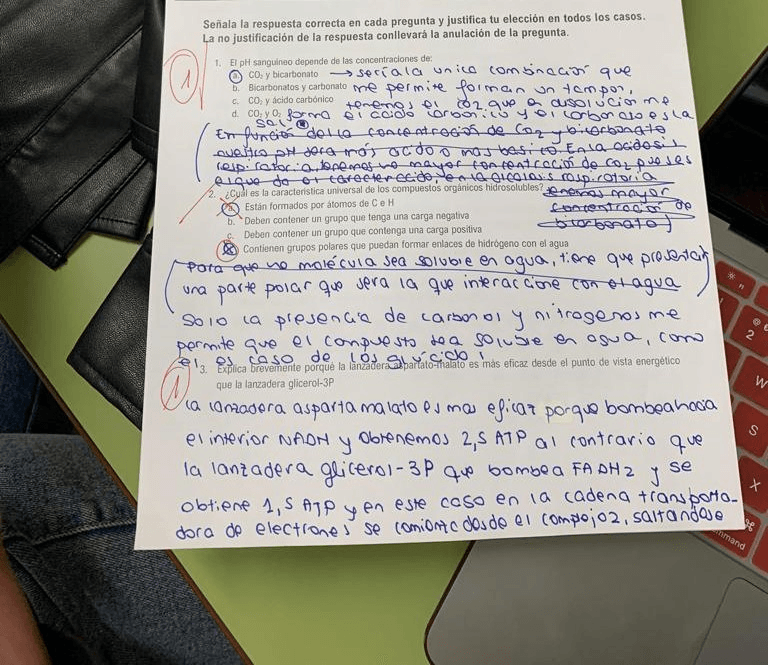 Señala la respuesta correcta en cada pregunta y justifica tu elección en todos los casos.
La no justificación de la respuesta conllevará la anulación de la pregunta.
1
1. El pH sanguíneo depende de las concentraciones de:
a. CO₂ y bicarbonato → sería la unica combinación que
b. Bicarbonatos y carbonato me permite forman un tampon,
c. CO₂ y ácido carbónico tenemos el CO2 que en disolución me
d. CO₂ y O₂ forma el acido carbonico y el carbonato es la
sal
(En función de la concentración de CO2 y bicarbonato
nuestro pH sera más acido o mas basico. En la acidosis
respiratoria tenemos una mayor concentración de CO2 pues es
el que da el caracter acido, en la alcalosis respiratoria
2. ¿Cuál es la característica universal de los compuestos orgánicos hidrosolubles? tenemos mayor
a. Están formados por átomos de C e H concentración de
b. Deben contener un grupo que tenga una carga negativa bicarbonato)
c. Deben contener un grupo que contenga una carga positiva
Contienen grupos polares que puedan formar enlaces de hidrógeno con el agua
(Para que una molécula sea soluble en agua, tiene que presentar
una parte polar que sera la que interaccione con el agua)
Solo la presencia de carbonos y nitrogenos me
permite que el compuesto sea soluble en agua, como
el es caso de los glucidos
1
3. Explica brevemente porqué la lanzadera aspartato-malato es más eficaz desde el punto de vista energético
que la lanzadera glicerol-3P
la lanzadera aspartamalato es mas eficaz porque bombea hacia
el interior NADH y obtenemos 2,5 ATP al contrario que
la lanzadera glicerol-3P que bombea FADH2 y se
obtiene 1,5 ATP y en este caso en la cadena transporta-
dora de electrones se comienza desde el complejo 2, saltandose
2
W
S
X
⌘
command